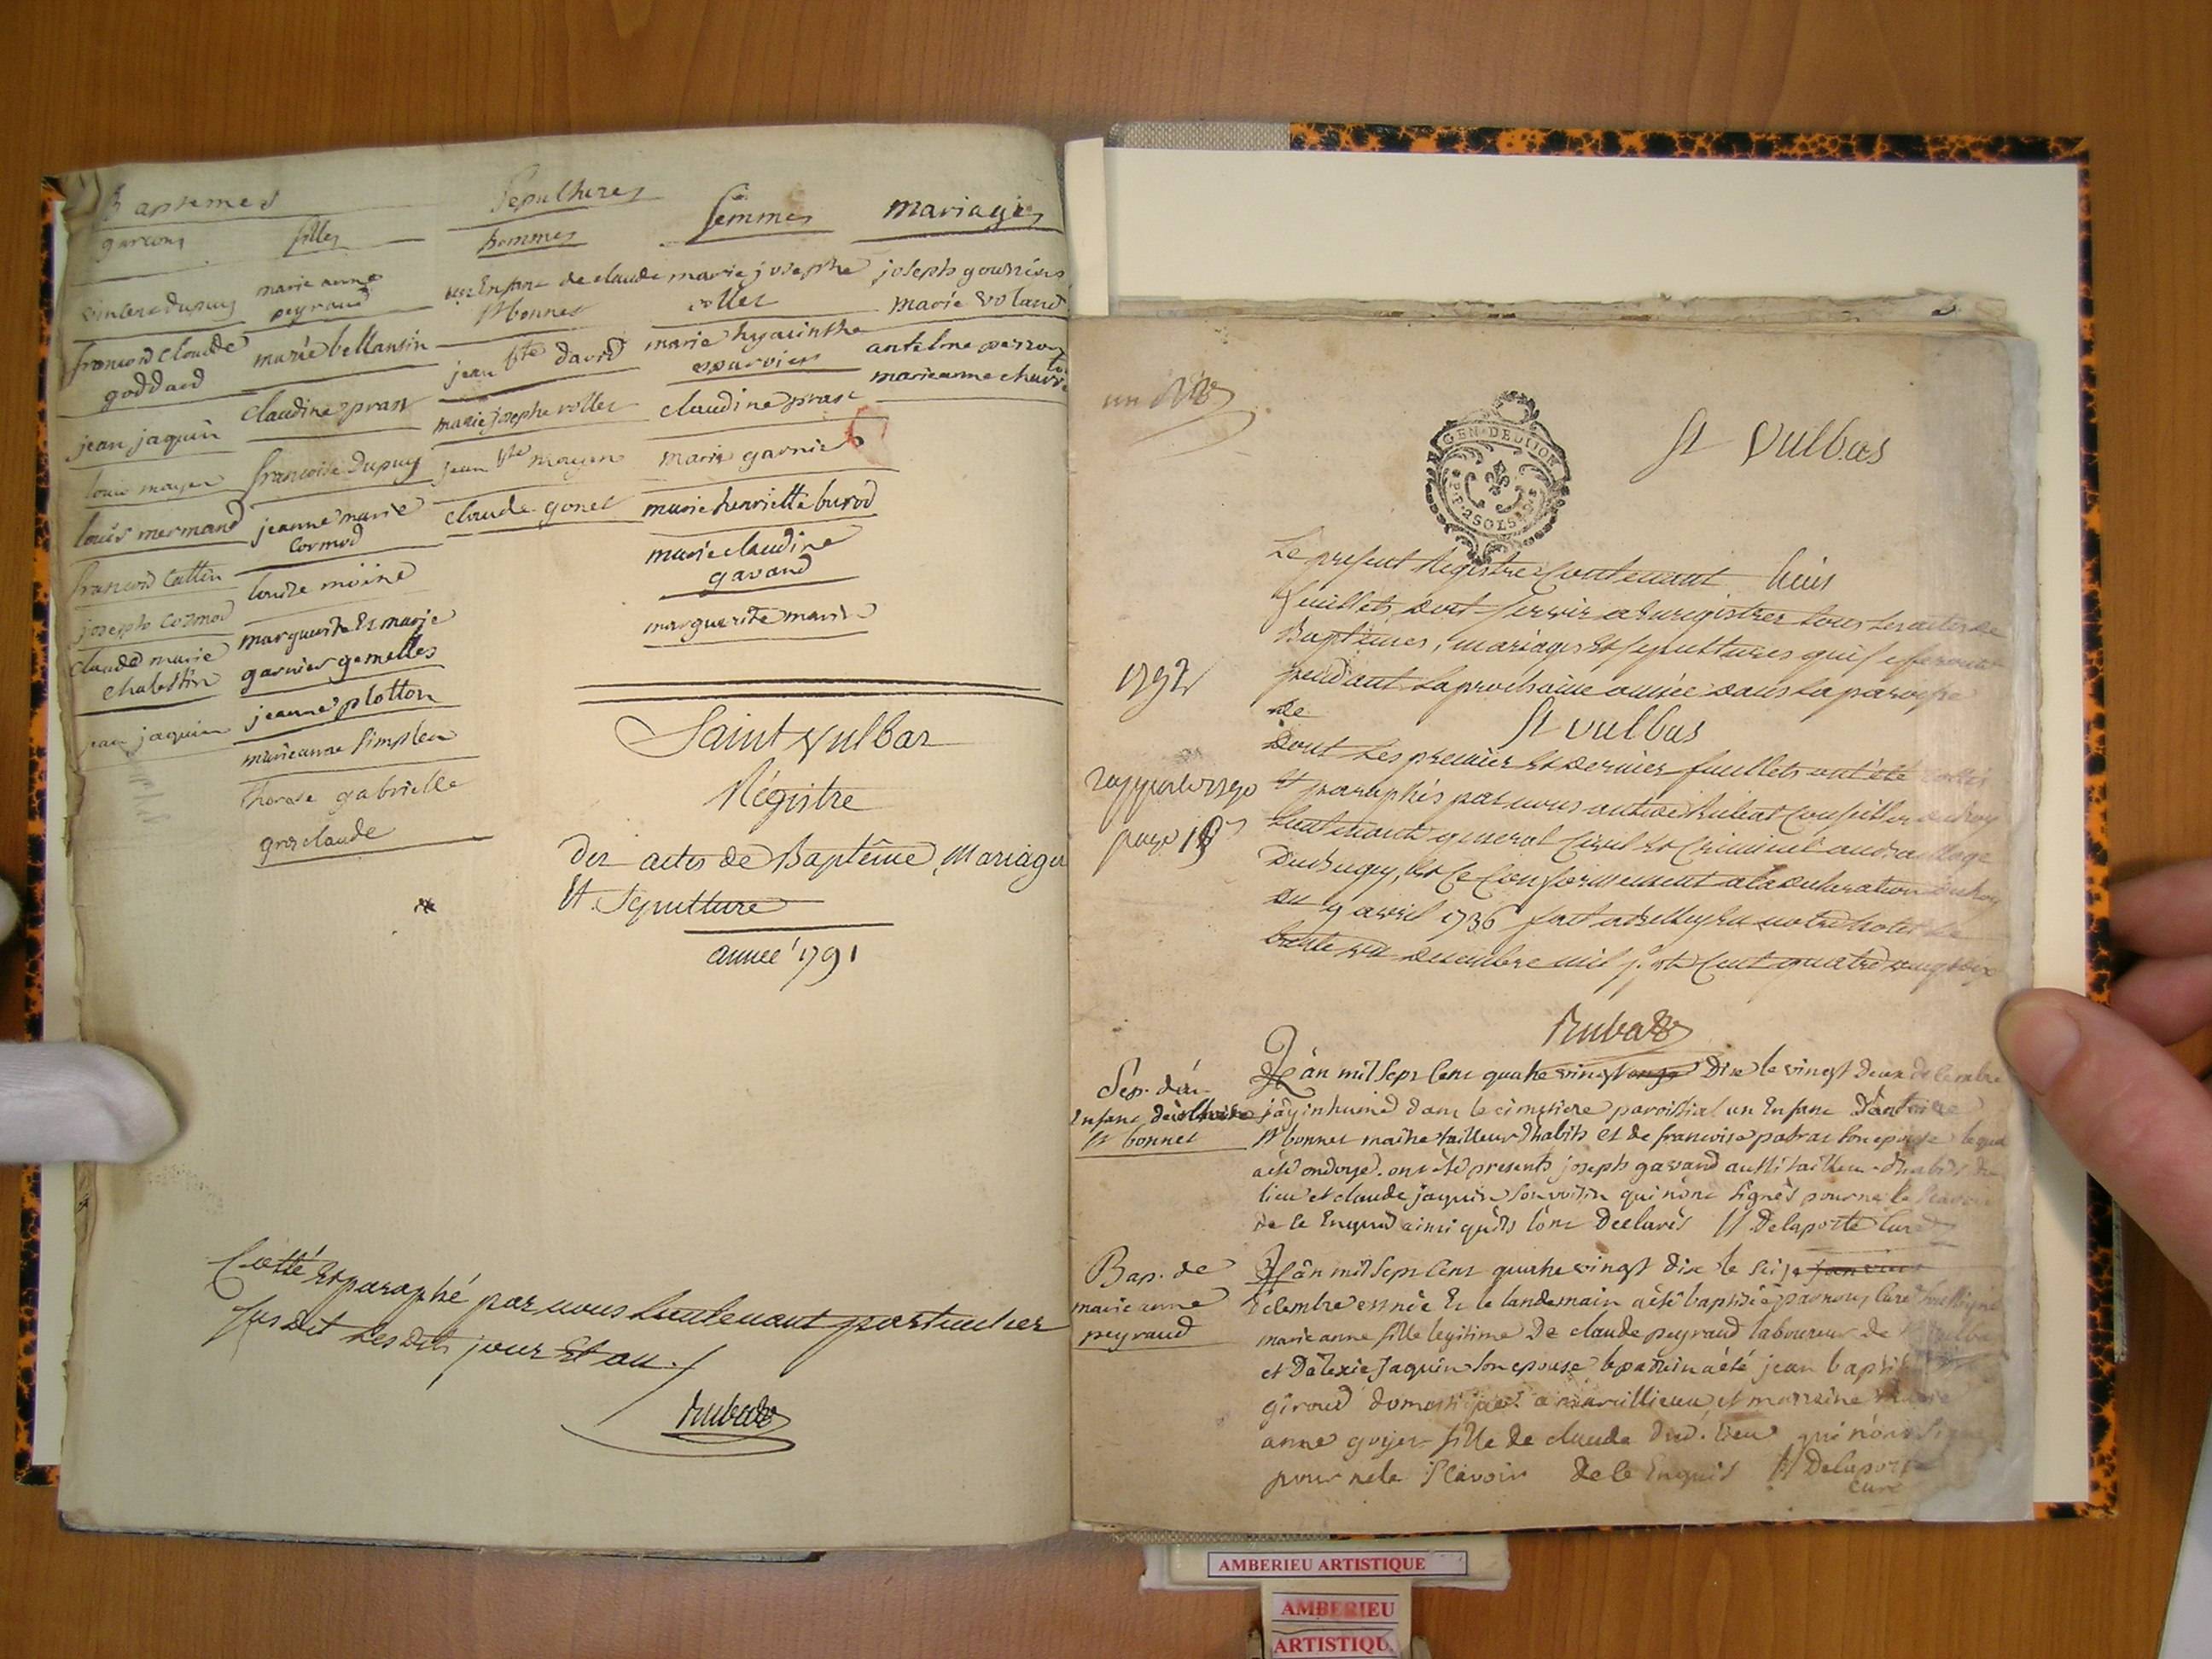 Baptemes
garcons
filles
vincent dupuy
marie anne
peyraud
francois claude
goddard
marie bellansin
jean jaquin
claudine prast
louis moyen
francoise dupuy
louis mermand
jeanne marie
cormod
francois cattin
louise moine
joseph cormod
claude marie
chalestin
marguerite Et marie
garnier gemelles
jean jaquin
jeanne plotton
marie anne simplen
therese gabrielle
grosclaude
Sepultures
hommes
femmes
un Enfant de claude
St bonnet
marie josephe
rollet
jean bte david
marie hyacinthe
marie josephe rollet
claudine prast
jean bte moyen
marie garnier
claude gonet
marie henriette burod
marie claudine
gavand
marguerite marie
mariages
joseph
marie voland
antelme perron
marie anne
Saint Vulbas
Régistre
des actes de Baptême, Mariages
Et Sepulture
année 1791
Cotté Et paraphé par nous Lieutenant particulier
susdit Les dits jour Et an ./.
Rubat
un Rub
GEN. DE DIJON
DE 2 SOLS
St Vulbas
Le present Registre Contenant huit
feuillets, doit servir a Enregistrer tous Les actes de
Baptêmes, mariages Et sepultures qui se feront
pendant La prochaine année dans La paroisse
de St vulbas
Dont Les premier Et Dernier feuillets ont été cottés
Et paraphés par nous antoine Rubat Conseiller du Roy
Lieutenant general Civil Et Criminel au Bailliage
Du Bugey, Et Ce Conformement a la declaration du Roy
du 9 avril 1736 fait a Belley En notre hotel Le
trente un decembre mil sept Cent quatre vingt dix
Rubat
1792
page 18
Sep. d'un
Enfant de
St bonnet
L'an mil sept cent quatre vingt onze dix le vingt deux decembre
j'ay inhumé dans le cimetiere paroissial un Enfant d'antoine
St bonnet maitre tailleur d'habits et de francoise pabras son epouse lequel
a été ondoyé. ont été presents joseph gavand aussi tailleur d'habits du
lieu et claude jaquin son voisin qui n'ont signés pour ne le scavoir
de ce Enquis ainsi qu'ils l'ont declarés // Delaporte Curé
Bap. de
marie anne
peyraud
L'an mil sept cent quatre vingt dix le seize janvier
decembre est née Et le landemain a été baptisée par nous curé soussigné
marie anne fille legitime de claude peyraud laboureur de St vulbas
et d'alexie Jaquin son epouse le parrain a été jean baptiste
giroud domestique a marillieux et marraine marie
anne goyer fille de claude dud. lieu qui n'ont signé
pour ne le Scavoir de ce Enquis // Delaporte
curé
AMBERIEU ARTISTIQUE
AMBERIEU
ARTISTIQU